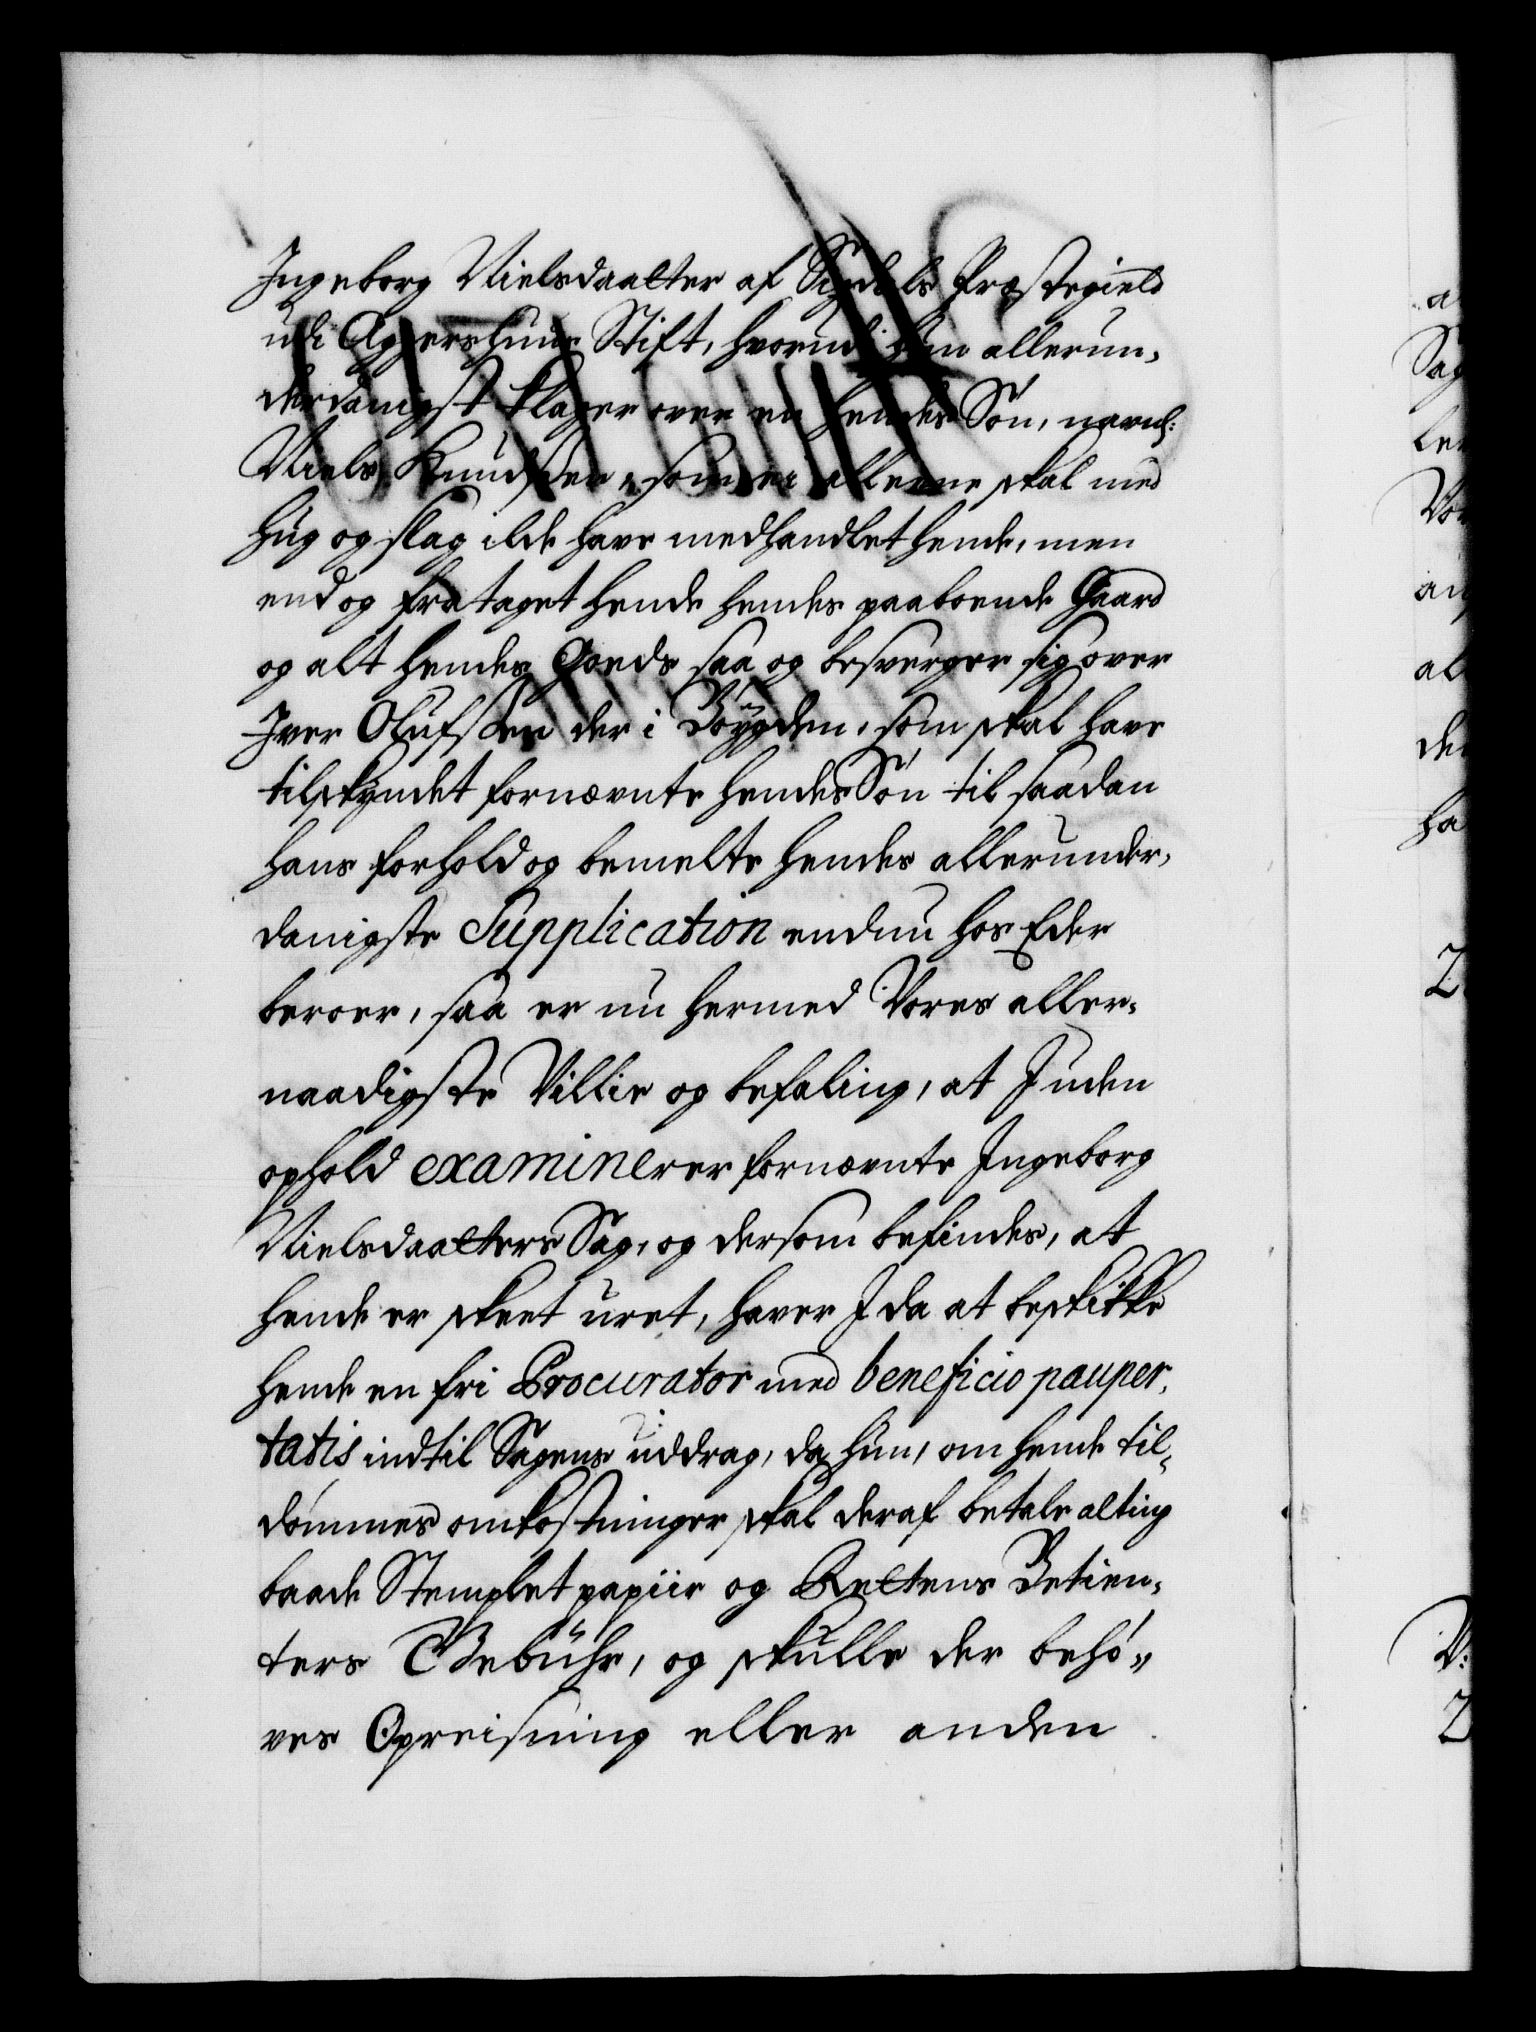 Ingeborg Nielsdaatter af Sigdals Præstegield
udi Aggershuus Stift, hvorudi hun allerun,
derdanigst klager over en hendes Sön, navnl:
Niels Knudsen, som ei alleene skal med
hug og slag ilde have medhandlet hende, men
end og frataget hende hendes paaboende Gaard
og alt hendes Goeds saa og besverger sig over
Iver Olufsen der i Böygden, som skal have
tilskyndet fornævnte hendes Sön til saadan
hans forhold og bemelte hendes allerunder,
danigste Supplication endnu hos Eder
beroer, saa er nu hermed Vores aller,
naadigste Villie og befaling, at I uden
ophold examinerer fornævnte Ingeborg
Nielsdaatters Sag, og dersom befindes, at
hende er skeet uret, haver I da at beskikke
hende en fri Procurator med beneficio pauper,
tatis indtil Sagens uddrag, da hun, om hende til,
dömmes omkostninger skal deraf betale alting
baade Stemplet papiir og Rettens Betien,
ters Gebühr, og skulle der behö,,
ves Opreisning eller anden